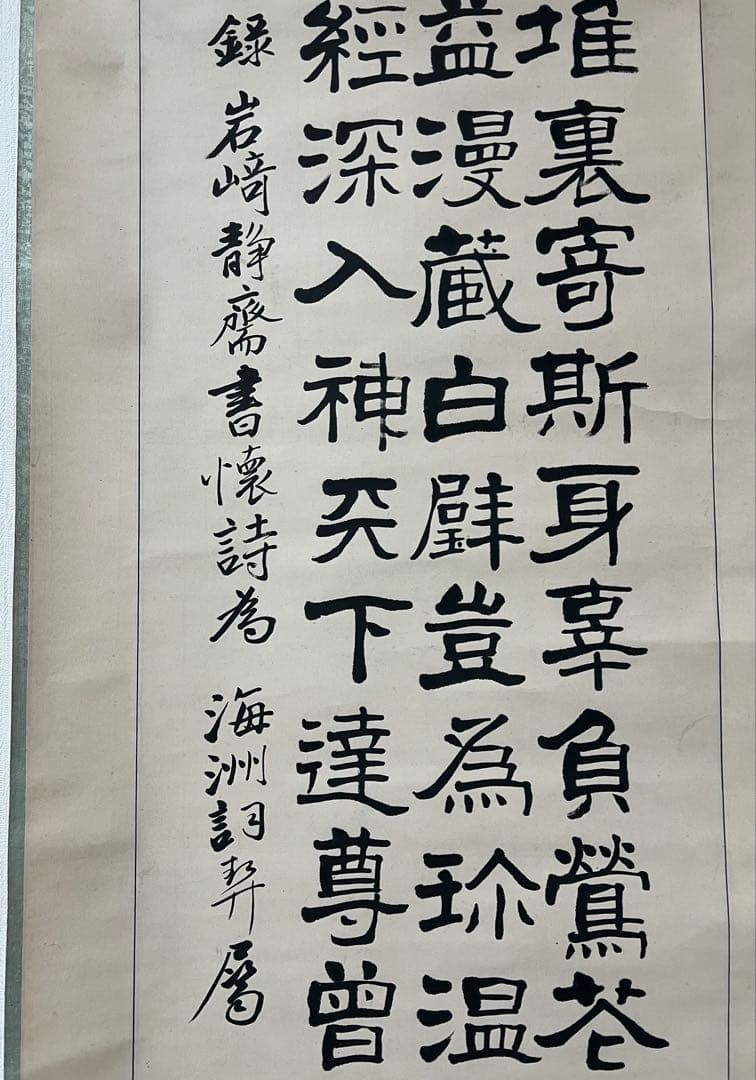 堆裏寄斯身辜負鶯花
益漫蔵白璧豈為珎温
經深入神天下達尊曾
錄岩﨑静齋書懷詩為 海洲詞契屬